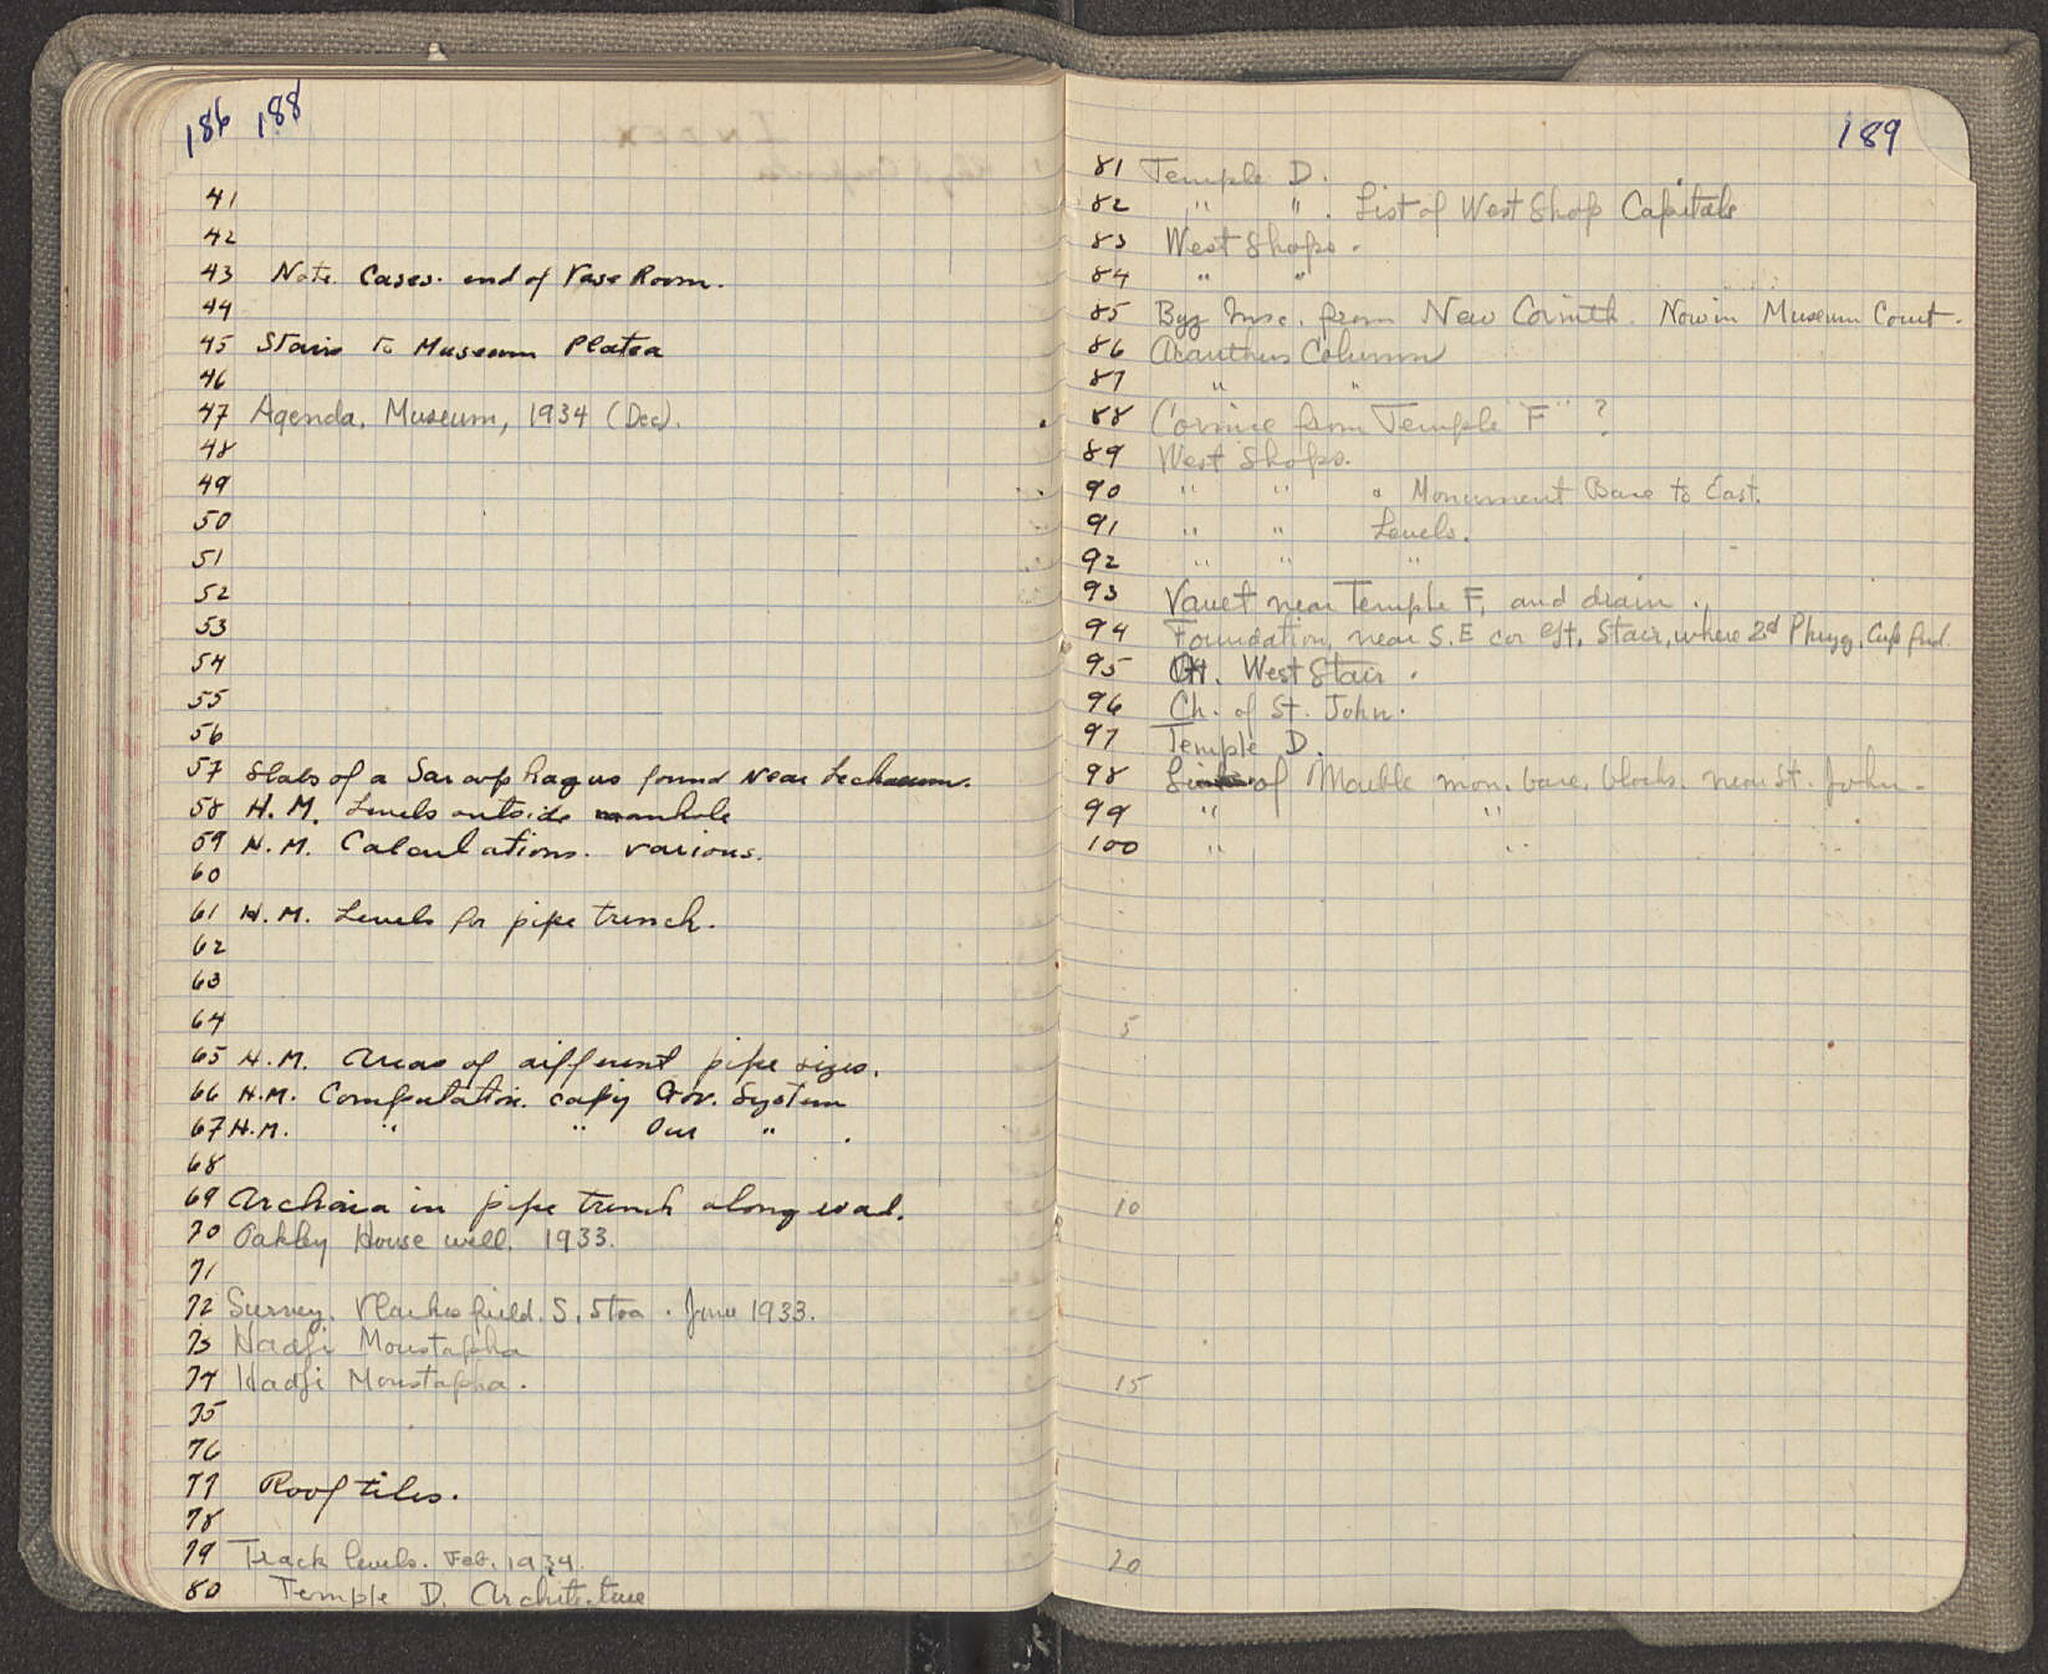 186 188
41
42
43 Note. Cases. end of Vase Room.
44
45 Stairs to Museum Platea
46
47 Agenda. Museum, 1934 (Dec).
48
49
50
51
52
53
54
55
56
57 Slabs of a Sarcophagus found near Lechaeum.
58 H.M. Levels outside manhole
59 H.M. Calculations. various.
60
61 H.M. Levels for pipe trench.
62
63
64
65 H.M. Areas of different pipe sizes.
66 H.M. Computation. cap'y Gov. System
67 H.M. " " Our " .
68
69 Archaia in pipe trench along road.
70 Oakley House well. 1933.
71
72 Survey. Vlachos field. S. Stoa. June 1933.
73 Hadji Moustapha
74 Hadji Moustapha.
75
76
77 Roof tiles.
78
79 Track levels. Feb. 1934.
80 Temple D. Architecture
189
81 Temple D.
82 " " . List of West Shop Capitals
83 West Shops.
84 " "
85 Byz Insc. from New Corinth. Now in Museum Court.
86 Acanthus Column
87 " "
88 Cornice from Temple "F" ?
89 West Shops.
90 " " " Monument Base to East.
91 " " Levels.
92 " " "
93 Vault near Temple F, and drain.
94 Foundation, near S.E cor Stair, where 2d Phryg. Cap fnd.
95 West Stair.
96 Ch. of St. John.
97 Temple D.
98 of Marble mon. base. blocks. near St. John.
99 " "
100 " "
5
10
15
20